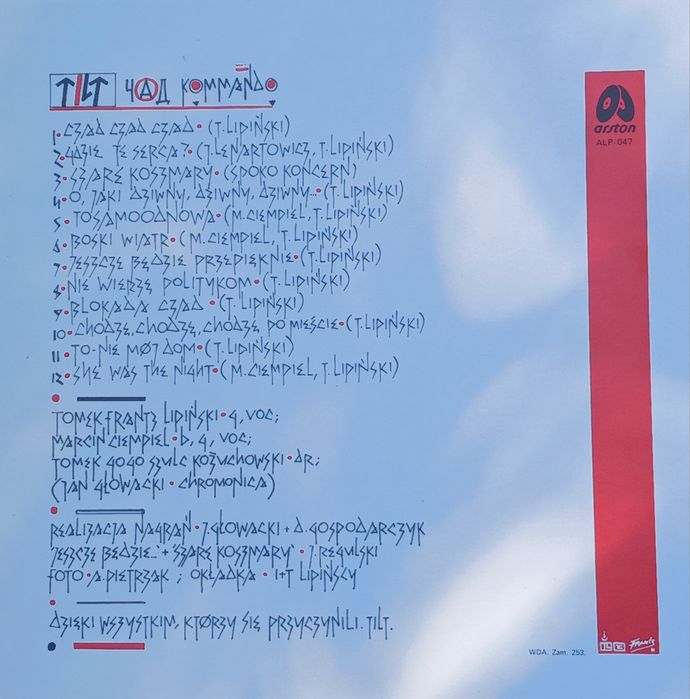 TILT ЧАД KOMMANDO
1. CZAD CZAD CZAD • (T. LIPIŃSKI)
2. GDZIE TE SERCA? • (J. LENARTOWICZ, T. LIPIŃSKI)
3. SZARE KOSZMARY • (SPOKO KONCERN)
4. O, JAKI DZIWNY, DZIWNY, DZIWNY... • (T. LIPIŃSKI)
5. TOSAMOODNOWA • (M. CIEMPIEL, T. LIPIŃSKI)
6. BOSKI WIATR • (M. CIEMPIEL, T. LIPIŃSKI)
7. JESZCZE BĘDZIE PRZEPIĘKNIE • (T. LIPIŃSKI)
8. NIE WIERZĘ POLITYKOM • (T. LIPIŃSKI)
9. BLOKADA CZAD • (T. LIPIŃSKI)
10. CHODZĘ, CHODZĘ, CHODZĘ, PO MIEŚCIE • (T. LIPIŃSKI)
11. TO-NIE MØJ DOM • (T. LIPIŃSKI)
12. SHE WAS THE NIGHT • (M. CIEMPIEL, T. LIPIŃSKI)
TOMEK FRANTZ LIPIŃSKI • G, VOC;
MARCIN CIEMPIEL • B, G, VOC;
TOMEK GOGO SZULC KOŻUCHOWSKI • DR;
(JAN GŁOWACKI • CHROMONICA)
REALIZACJA NAGRAŃ • J. GŁOWACKI + D. GOSPODARCZYK
'JESZCZE BĘDZIE...' + 'SZARE KOSZMARY' • J. REGULSKI
FOTO • A. PIETRZAK ; OKŁADKA • I+T LIPIŃSCY
DZIĘKI WSZYSTKIM, KTØRZY SIĘ PRZYCZYNILI. TILT.
arston
ALP-047
WDA. Zam. 253.
Frantz